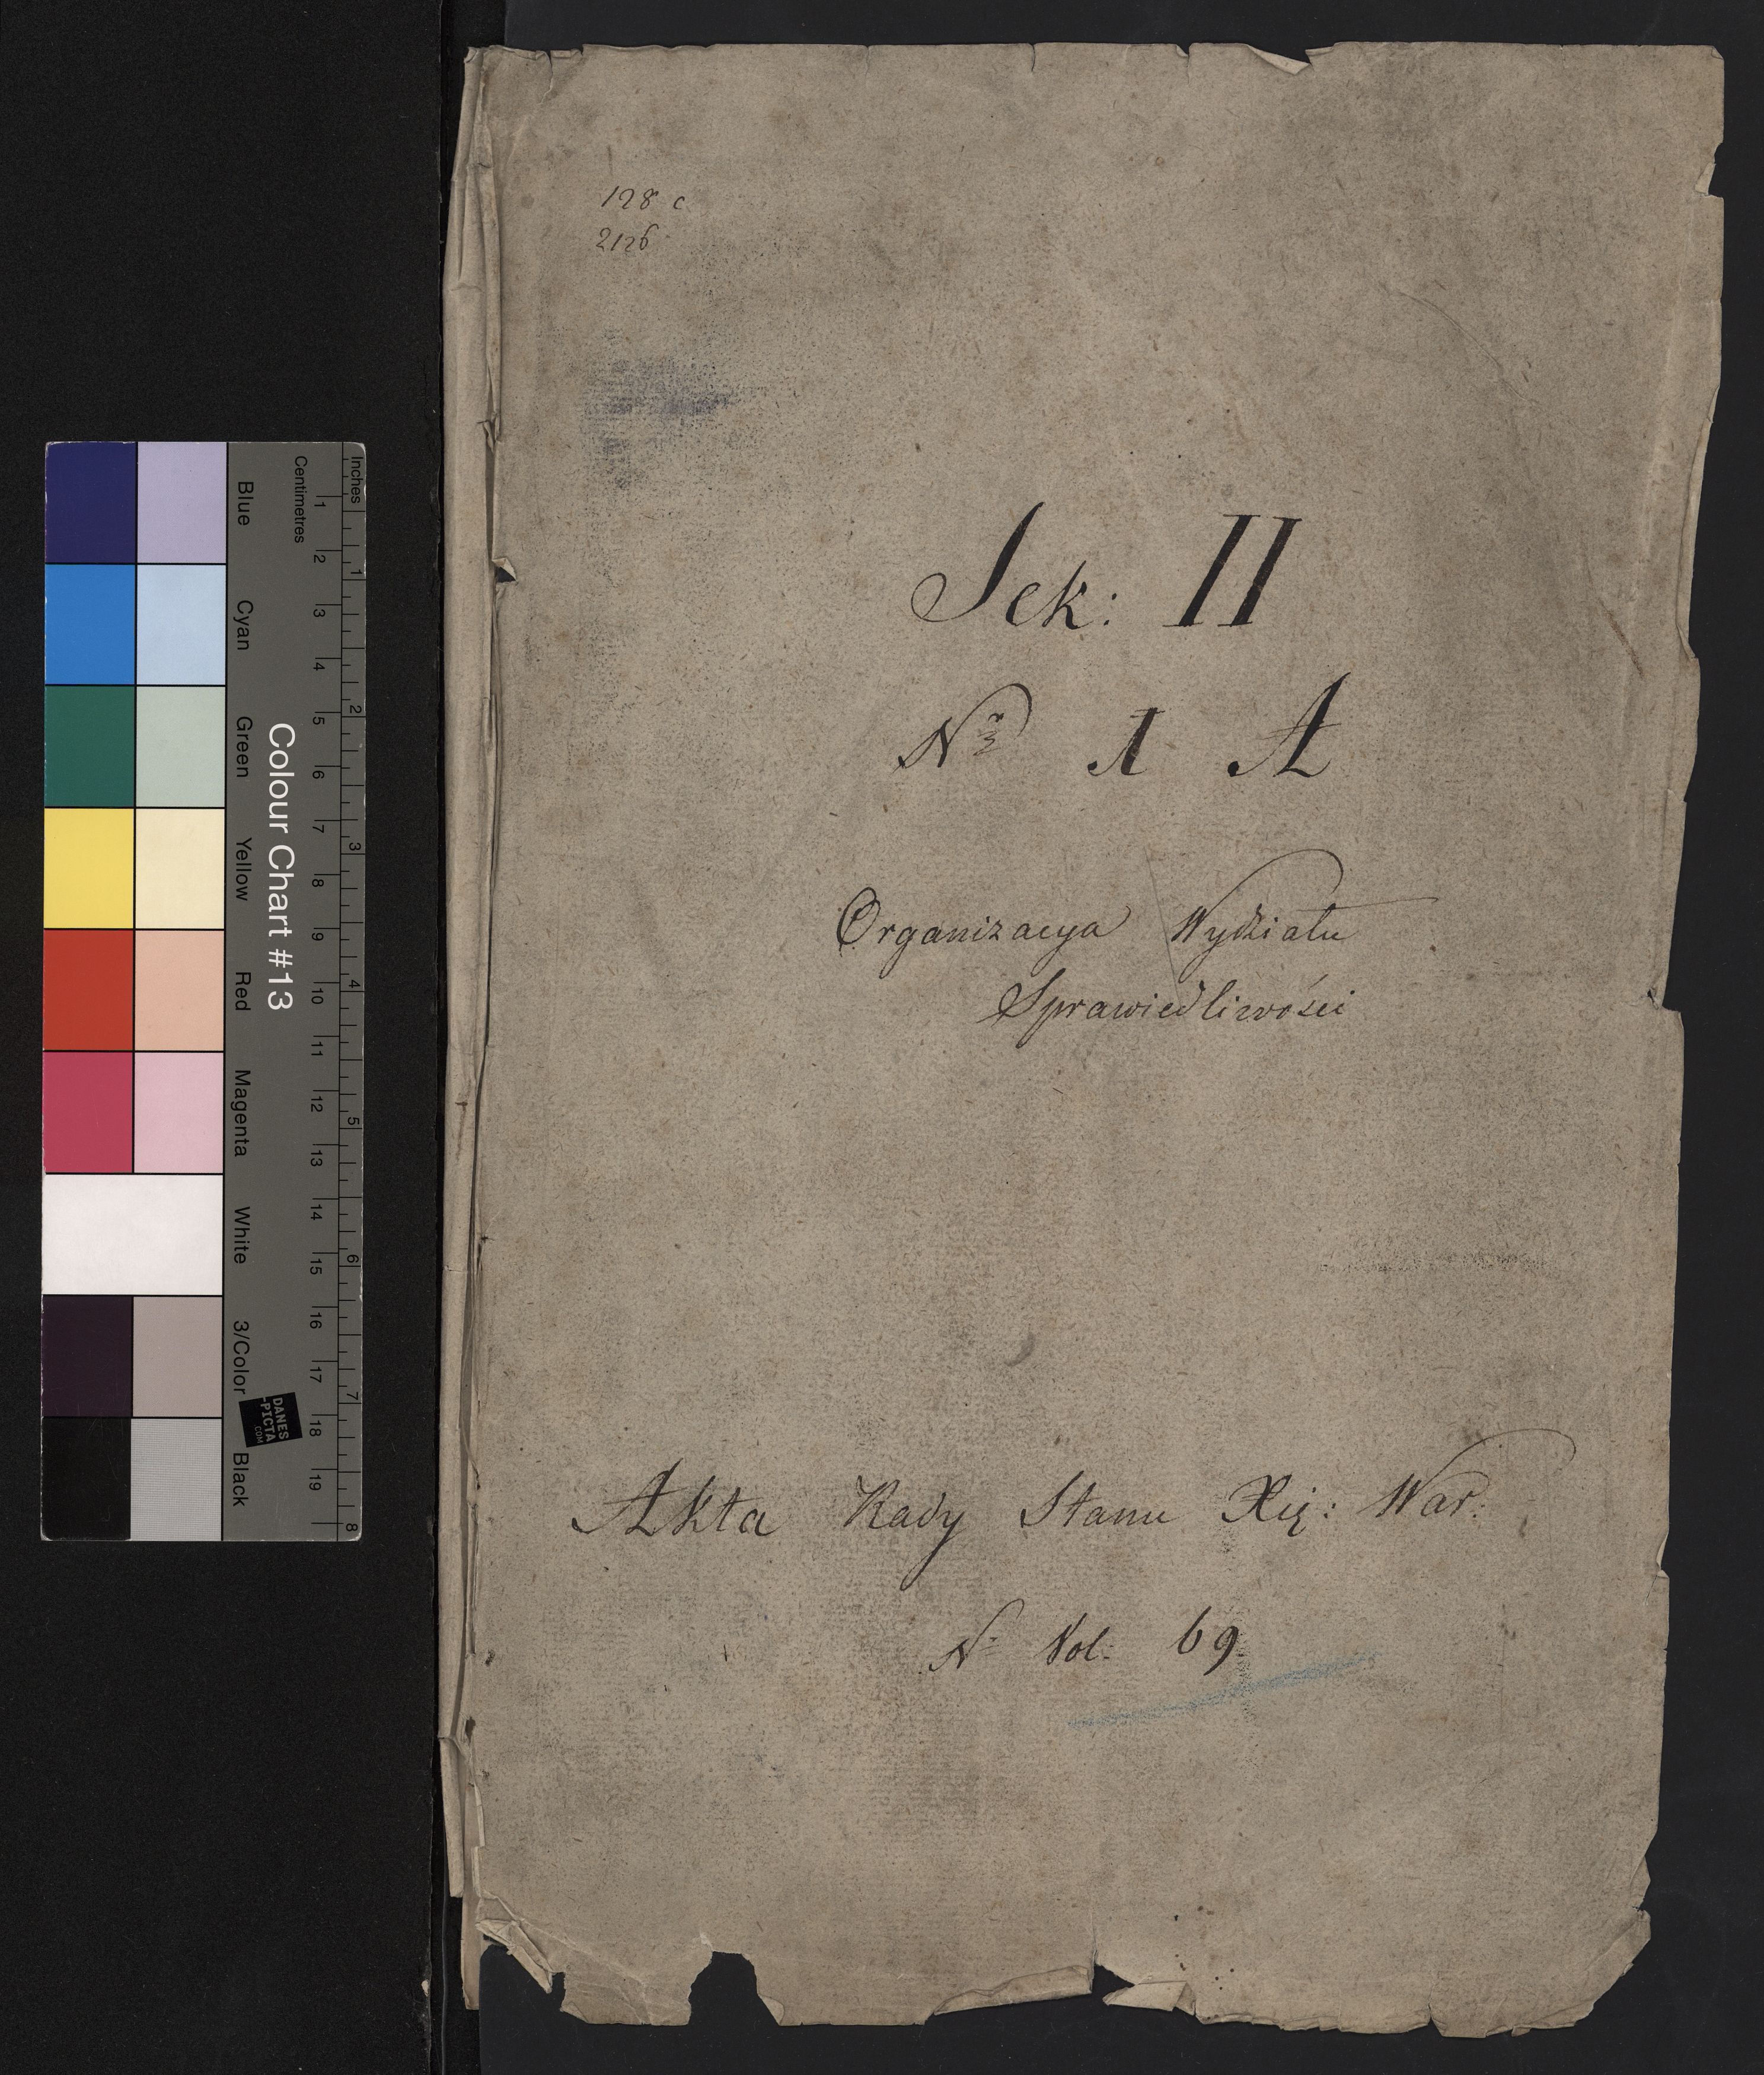 128 c
2126
Sek: II
Nr 1 A
Organizacya Wydziału
Sprawiedliwości
Akta Rady Stanu Xię: War:
N: Vol: 69.
Colour Chart #13
Blue Cyan Green Yellow Red Magenta White 3/Color Black
Centimetres 1 2 3 4 5 6 7 8 9 10 11 12 13 14 15 16 17 18 19
Inches 1 2 3 4 5 6 7 8
DANES
-PICTA
.COM